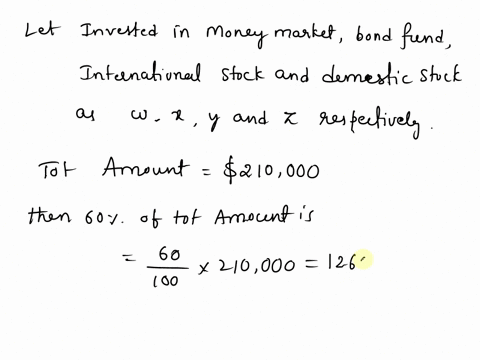 Let Invested in Money market, bond fund,
International stock and domestic stock
as w, x, y and z respectively.
Tot Amount = $210,000
then 60% of tot Amount is
= 60/100 × 210,000 = 126